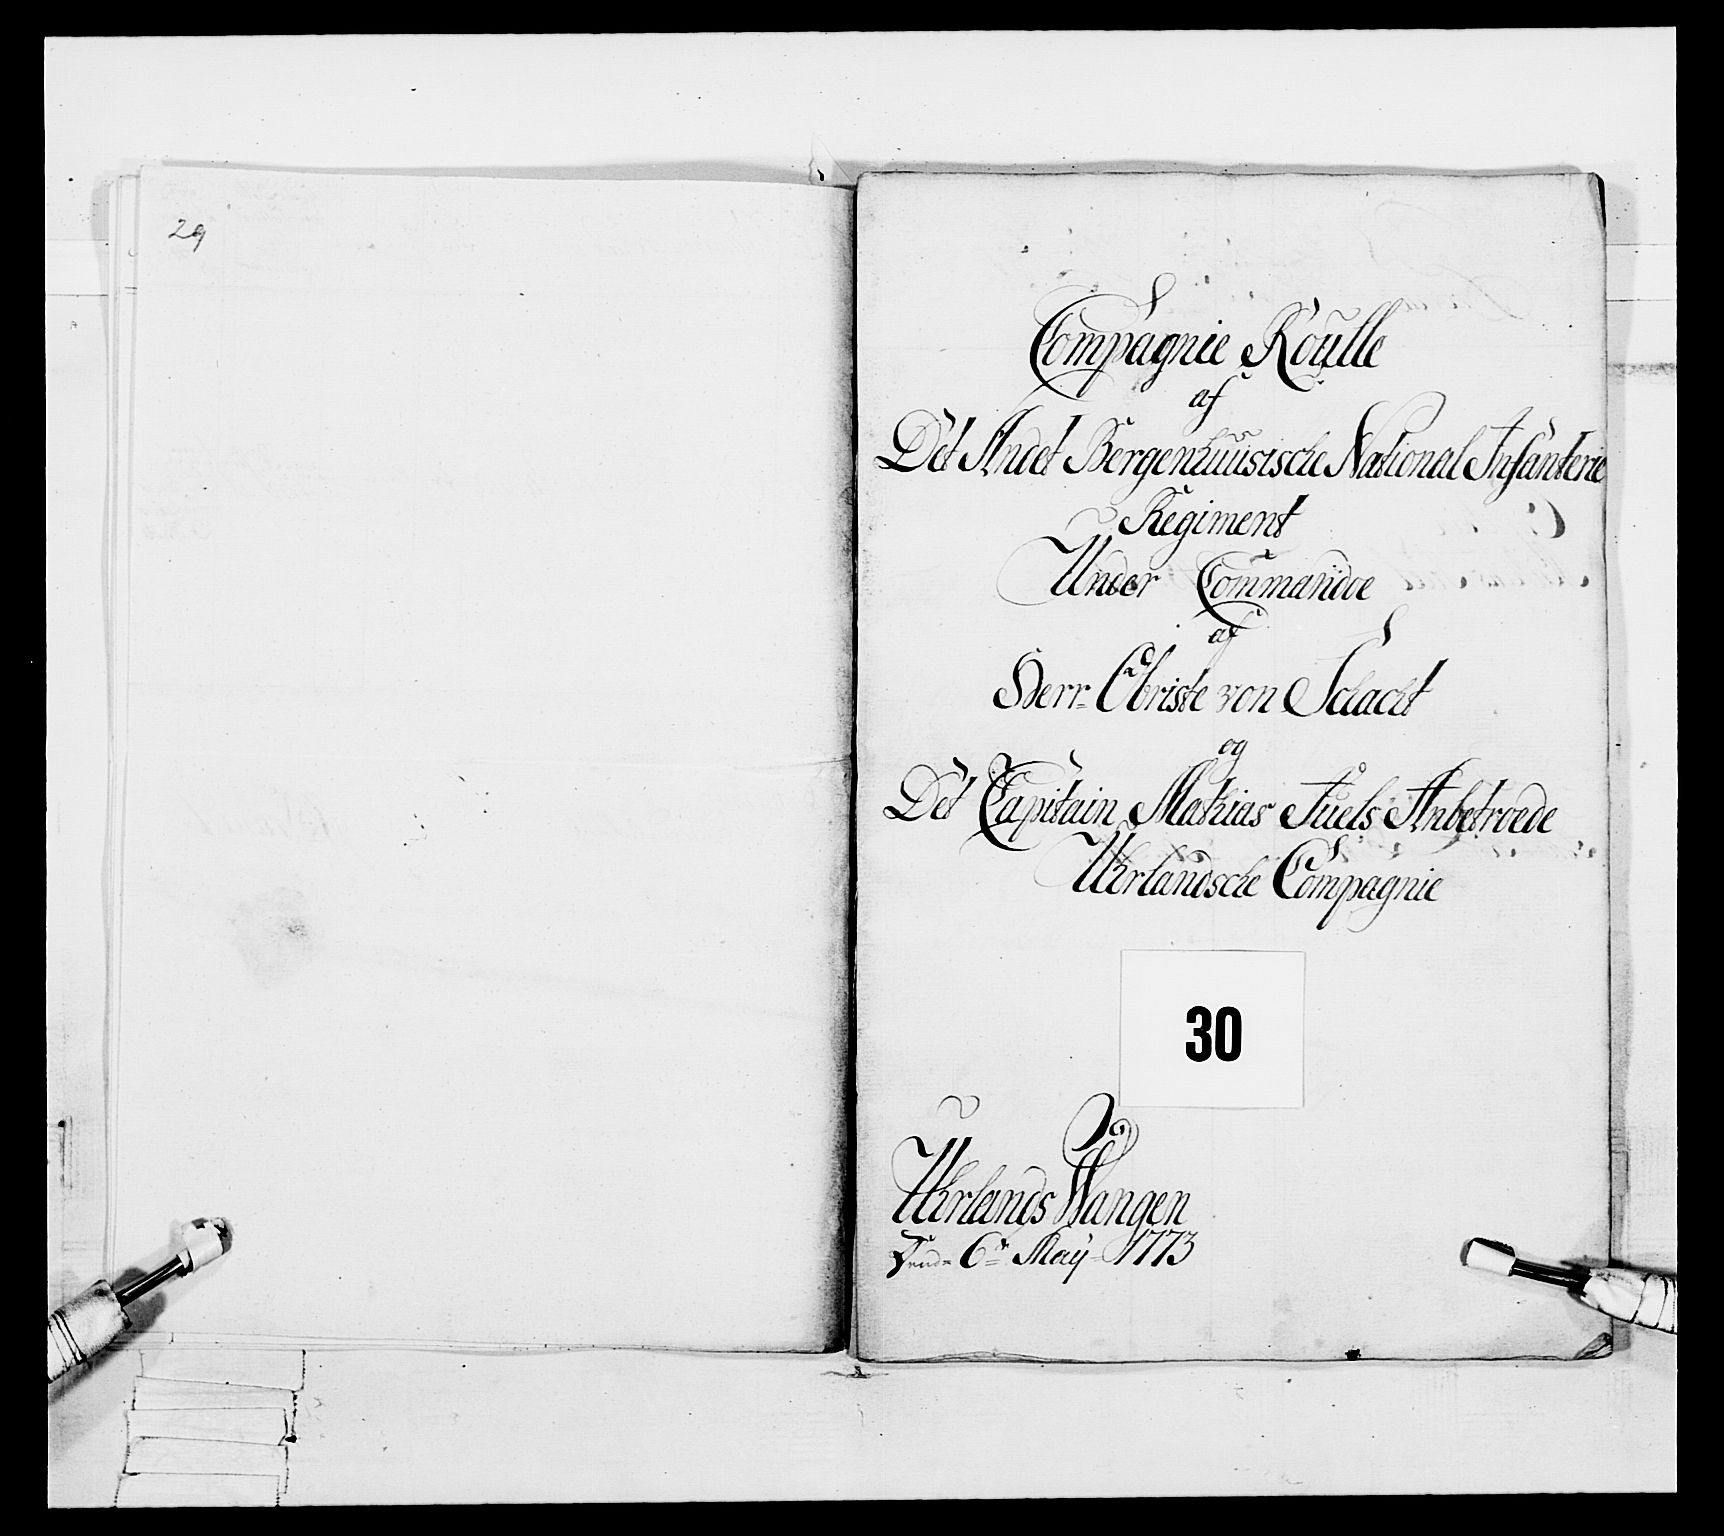 29
Compagnie Roulle
af
Det Andet Bergenhuusische National Infanterie
Regiment
Under Commandoe
af
Herr Obriste von Schacht
og
Det Capitain Mathias Juels Anbetroede
Uhrlandsche Compagnie
30
Uhrlands Wangen
6te May 1773